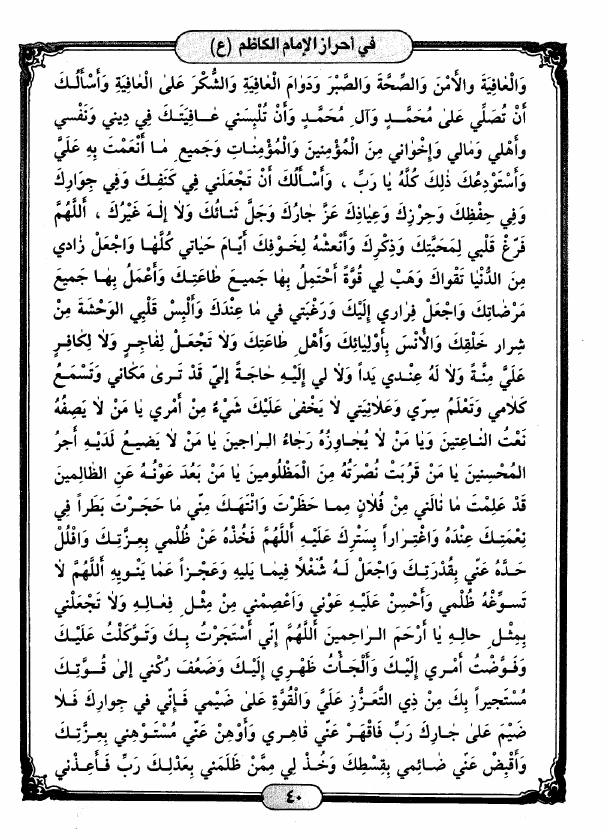 في احراز الإمام الكاظم (ع)
وَالْعافِيَةَ والأَمْنَ وَالصِّحَّةَ وَالصَّبْرَ وَدَوَامَ الْعافِيَةِ وَالشُّكْرَ عَلىٰ الْعافِيَةِ وَأَسْأَلُـكَ
أَنْ تُصَلِّي عَلىٰ مُحَمَّـدٍ وَآلِ مُحَمَّـدٍ وَأَنْ تُلْبِسَني عَـافِيَتَـكَ فِي دِيني وَنَفْسي
وَأَهْلي وَمَالي وَإِخْوَاني مِنَ الْمُؤْمِنِينَ وَالْمُؤْمِنـاتِ وَجَميعِ مٰـا أَنْعَمْتَ بِهِ عَلَيَّ
وَأَسْتَوْدِعُكَ ذٰلِكَ كُلَّهُ يٰا رَبِّ ، وَأَسْـأَلُكَ أَنْ تَجْعَلَني فِي كَنَفِـكَ وَفِي جِوَارِكَ
وَفِي حِفْظِكَ وَحِرْزِكَ وَعِيَاذِكَ عَزَّ جٰارُكَ وَجَلَّ ثَنائُكَ وَلاٰ إِلـهَ غَيْرُكَ ، أَللَّهُمَّ
فَرِّغْ قَلْبي لِمَحَبَّتِكَ وَذِكْرِكَ وَأَنْعشْهُ لِخَوْفِكَ أَيّامَ حَياتي كُلَّهٰا وَاجْعَلْ زٰادي
مِنَ الدُّنْيٰا تَقْواكَ وَهَبْ لِي قُوَّةً أَحْتَمِلُ بِهٰا جَميـعَ طَاعَتِـكَ وَأَعْمَلُ بِهٰـا جَميعَ
مَرْضٰاتِكَ وَاجْعَلْ فِرَاري إِلَيْكَ وَرَغْبَتي في مٰا عِنْدَكَ وَأَلْبِسْ قَلْبي الوَحْشَةَ مِنْ
شِرارِ خَلْقِكَ وَالأُنْسَ بِأَوْلِيٰائِكَ وَأَهْلِ طٰاعَتِكَ وَلاٰ تَجْعَـلْ لِفٰاجِرٍ وَلاٰ لِكٰافِرٍ
عَلَيَّ مِنَّةً وَلاٰ لَهُ عِنْدي يَداً وَلاٰ لي إِلَيْهِ حٰاجَةً إِليّ قَدْ تَـرىٰ مَكٰاني وَتَسْمَـعُ
كَلاٰمي وَتَعْلَمُ سِرّي وَعَلاٰنِيَتي لاٰ يَخْفىٰ عَلَيْكَ شَيْءٌ مِنْ أَمْري يٰا مَنْ لاٰ يَصِفُهُ
نَعْتُ النّاعِتينَ وَيٰا مَنْ لاٰ يُجٰاوِزُهُ رَجٰاءُ الـراجينَ يٰا مَنْ لاٰ يَضيـعُ لَدَيْـهِ أَجرُ
المُحْسِنينَ يٰا مَنْ قَرُبَتْ نُصْرَتُهُ مِنَ الْمَظْلُومينَ يٰا مَنْ بَعُدَ عَوْنُـهُ عَنِ الظّالِمينَ
قَدْ عَلِمْتَ مٰا نٰالَني مِنْ فُلاٰنٍ مِمـا حَظَرْتَ وَانْتَهَـكَ مِنّي مٰا حَجَرْتَ بَطَراً في
نِعْمَتِـكَ عِنْدَهُ وَاغْتِـرٰاراً بِسَتْرِكَ عَلَيْـهِ أَللَّهُمَّ فَخُذْهُ عَنْ ظُلْمي بِعِـزَّتِـكَ وَافْلُلْ
حَدَّهُ عَنّي بِقُدْرَتِـكَ وَاجْعَلْ لَـهُ شُغْلاً فِيمٰـا يَليهِ وَعَجْـزاً عَمّا يَنْـويهِ أَللَّهُمَّ لاٰ
تَسـوِّغْهُ ظُلْمي وَأَحْسِنْ عَلَيْهِ عَوْني وَاعْصِمْني مِنْ مِثْـلِ فِعٰالِـهِ وَلاٰ تَجْعَلْني
بِمِثْـلِ حالِـهِ يٰا أَرْحَمَ الـراحِمينَ أَللَّهُمَّ إِنّي أَسْتَجَرْتُ بِـكَ وَتَـوَكَّلْتُ عَلَيْـكَ
وَفَـوَّضْتُ أَمْـري إِلَيْـكَ وَأَلْجَـأْتُ ظَهْـري إِلَيْـكَ وَضَعُفَ رُكْني إِلىٰ قُـوَّتِـكَ
مُسْتَجيراً بِكَ مِنْ ذِي التَّعَزُّزِ عَلَيَّ وَالْقُوَّةِ عَلىٰ ضَيْمي فَإِنّي في جِوارِكَ فَـلاٰ
ضَيْمَ عَلىٰ جٰـارِكَ رَبِّ فَاقْهَرْ عَنّي قٰاهِـري وَأَوْهِنْ عَنّي مُسْتَـوْهِني بِعِـزَّتِـكَ
وَأَقْبِضْ عَنّي ضٰـائِمي بِقِسْطِـكَ وَخُـذْ لِي مِمَّنْ ظَلَمَني بِعَدْلِـكَ رَبِّ فَـأَعِـذْني
٤٠